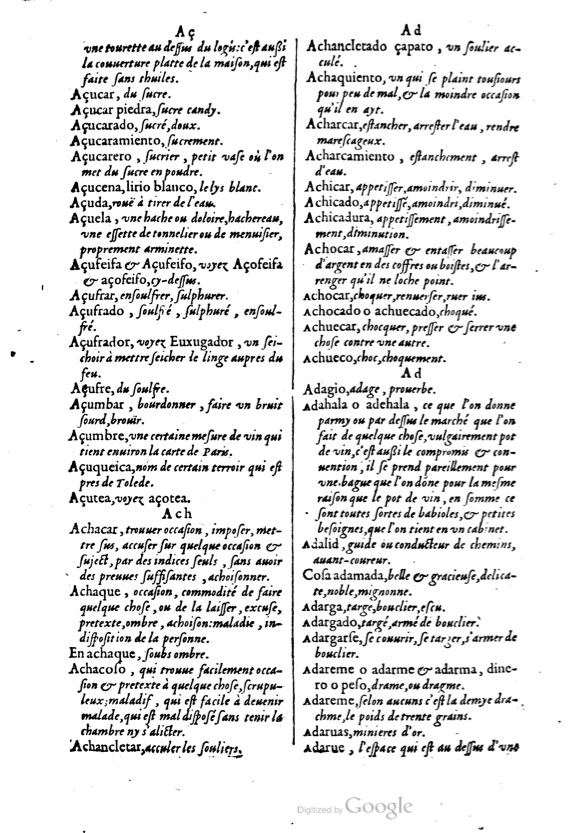 Aç
vne tourette au dessus du logis: c'est außi
la couuerture platte de la maison, qui est
faite sans thuiles.
Açucar, du sucre.
Açucar piedra, sucre candy.
Açucarado, sucré, doux.
Açucaramiento, sucrement.
Açucarero, sucrier, petit vase où l'on
met du sucre en poudre.
Açucena, lirio blanco, le lys blanc.
Açuda, rouë à tirer de l'eau.
Açuela, vne hache ou doloire, hachereau,
vne essette de tonnelier ou de menuisier,
proprement arminette.
Açufeifa & Açufeifo, voyez Açofeifa
& açofeifo, cy-dessus.
Açufrar, ensoulfrer, sulphurer.
Açufrado, soulfré, sulphuré, ensoul-
fré.
Açufrador, voyez Euxugador, vn sei-
choir à mettre seicher le linge aupres du
feu.
Açufre, du soulfre.
Açumbar, bourdonner, faire vn bruit
sourd, brouir.
Açumbre, vne certaine mesure de vin qui
tient enuiron la carte de Paris.
Açuqueica, nom de certain terroir qui est
pres de Tolede.
Açutea, voyez açotea.
Ach
Achacar, trouuer occasion, imposer, met-
tre sus, accuser sur quelque occasion &
suject, par des indices seuls, sans auoir
des preuues suffisantes, achoisonner.
Achaque, occasion, commodité de faire
quelque chose, ou de la laisser, excuse,
pretexte, ombre, achoison: maladie, in-
disposition de la personne.
En achaque, soubs ombre.
Achacoso, qui trouue facilement occa-
sion & pretexte à quelque chose, scrupu-
leux; maladif, qui est facile à deuenir
malade, qui est mal disposé sans tenir la
chambre ny s'alicter.
Achancletar, acculer les souliers.
Ad
Achancletado çapato, vn soulier ac-
culé.
Achaquiento, vn qui se plaint tousiours
pour peu de mal, & la moindre occasion
qu'il en ayt.
Acharcar, estancher, arrester l'eau, rendre
marescageux.
Acharcamiento, estanchement, arrest
d'eau.
Achicar, appetisser, amoindrir, diminuer.
Achicado, appetissé, amoindri, diminué.
Achicadura, appetissement, amoindrisse-
ment, diminution.
Achocar, amasser & entasser beaucoup
d'argent en des coffres ou boistes, & l'ar-
renger qu'il ne loche point.
Achocar, choquer, renuerser, ruer ius.
Achocado o achuecado, choqué.
Achuecar, chocquer, presser & serrer vne
chose contre vne autre.
Achueco, choc, choquement.
Ad
Adagio, adage, prouerbe.
Adahala o adehala, ce que l'on donne
parmy ou par dessus le marché que l'on
fait de quelque chose, vulgairement pot
de vin, c'est außi le compromis & con-
uention, il se prend pareillement pour
vne bague que l'on dōne pour la mesme
raison que le pot de vin, en somme ce
sont toutes sortes de babioles, & petites
besoignes, que l'on tient en vn cabinet.
Adalid, guide ou conducteur de chemins,
auant-coureur.
Cosa adamada, belle & gracieuse, delica-
te, noble, mignonne.
Adarga, targe, bouclier, escu.
Adargado, targé, armé de bouclier.
Adargarse, se couurir, se targer, s'armer de
bouclier.
Adareme o adarme & adarma, dine-
ro o peso, drame, ou dragme.
Adareme, selon aucuns c'est la demye dra-
chme, le poids de trente grains.
Adaruas, minieres d'or.
Adarue, l'espace qui est au dessus d'vne
Digitized by Google